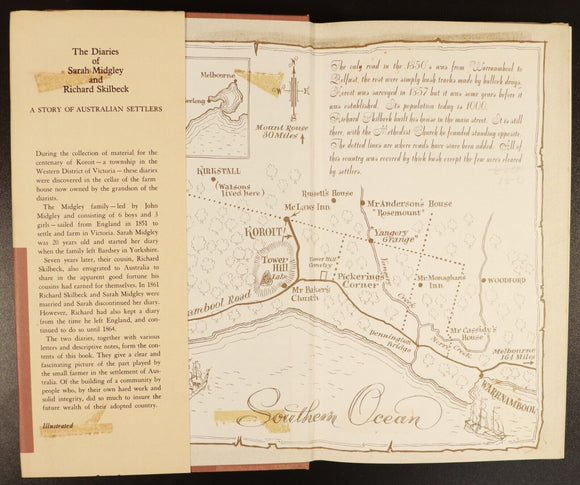 The Diaries
of
Sarah Midgley
and
Richard Skilbeck
A STORY OF AUSTRALIAN SETTLERS
During the collection of material for the
centenary of Koroit — a township in the
Western District of Victoria — these diaries
were discovered in the cellar of the farm
house now owned by the grandson of the
diarists.
The Midgley family — led by John
Midgley and consisting of 6 boys and 3
girls — sailed from England in 1851 to
settle and farm in Victoria. Sarah Midgley
was 20 years old and started her diary
when the family left Bardsey in Yorkshire.
Seven years later, their cousin, Richard
Skilbeck, also emigrated to Australia to
share in the apparent good fortune his
cousins had earned for themselves. In 1961
Richard Skilbeck and Sarah Midgley were
married and Sarah discontinued her diary.
However, Richard had also kept a diary
from the time he left England, and con-
tinued to do so until 1864.
The two diaries, together with various
letters and descriptive notes, form the con-
tents of this book. They give a clear and
fascinating picture of the part played by
the small farmer in the settlement of Aus-
tralia. Of the building of a community by
people who, by their own hard work and
solid integrity, did so much to insure the
future wealth of their adopted country.
Illustrated
Melbourne
eelong
Mount Rouse
30 Miles
The only road in the 1850's was from Warrnambool to
Belfast, the rest were simply bush tracks made by bullock drays.
Koroit was surveyed in 1857 but it was some years before it
was established. Its population today is 1000.
Richard Skilbeck built his house in the main street. It is still
there, with the Methodist Church he founded standing opposite.
The dotted lines are where roads have since been added. All of
this country was covered by thick bush except the few acres cleared
by settlers.
KIRKSTALL
(Watsons
lived here)
Russell's House
Mc Laws Inn
Mr Anderson's House
"Rosemount"
KOROIT
Yangery
Grange"
Tower
Hill
Lake
Tower Hill
Cemetery
Pickerings
Corner
Mr Monaghans
Inn
WOODFORD
Mr Baker's
Church
Creek
Mr Cassidy's
House
nambool Road
Dennington
Bridge
Creek
Melbourne
164 Miles
WARRNAMBOOL
Southern Ocean